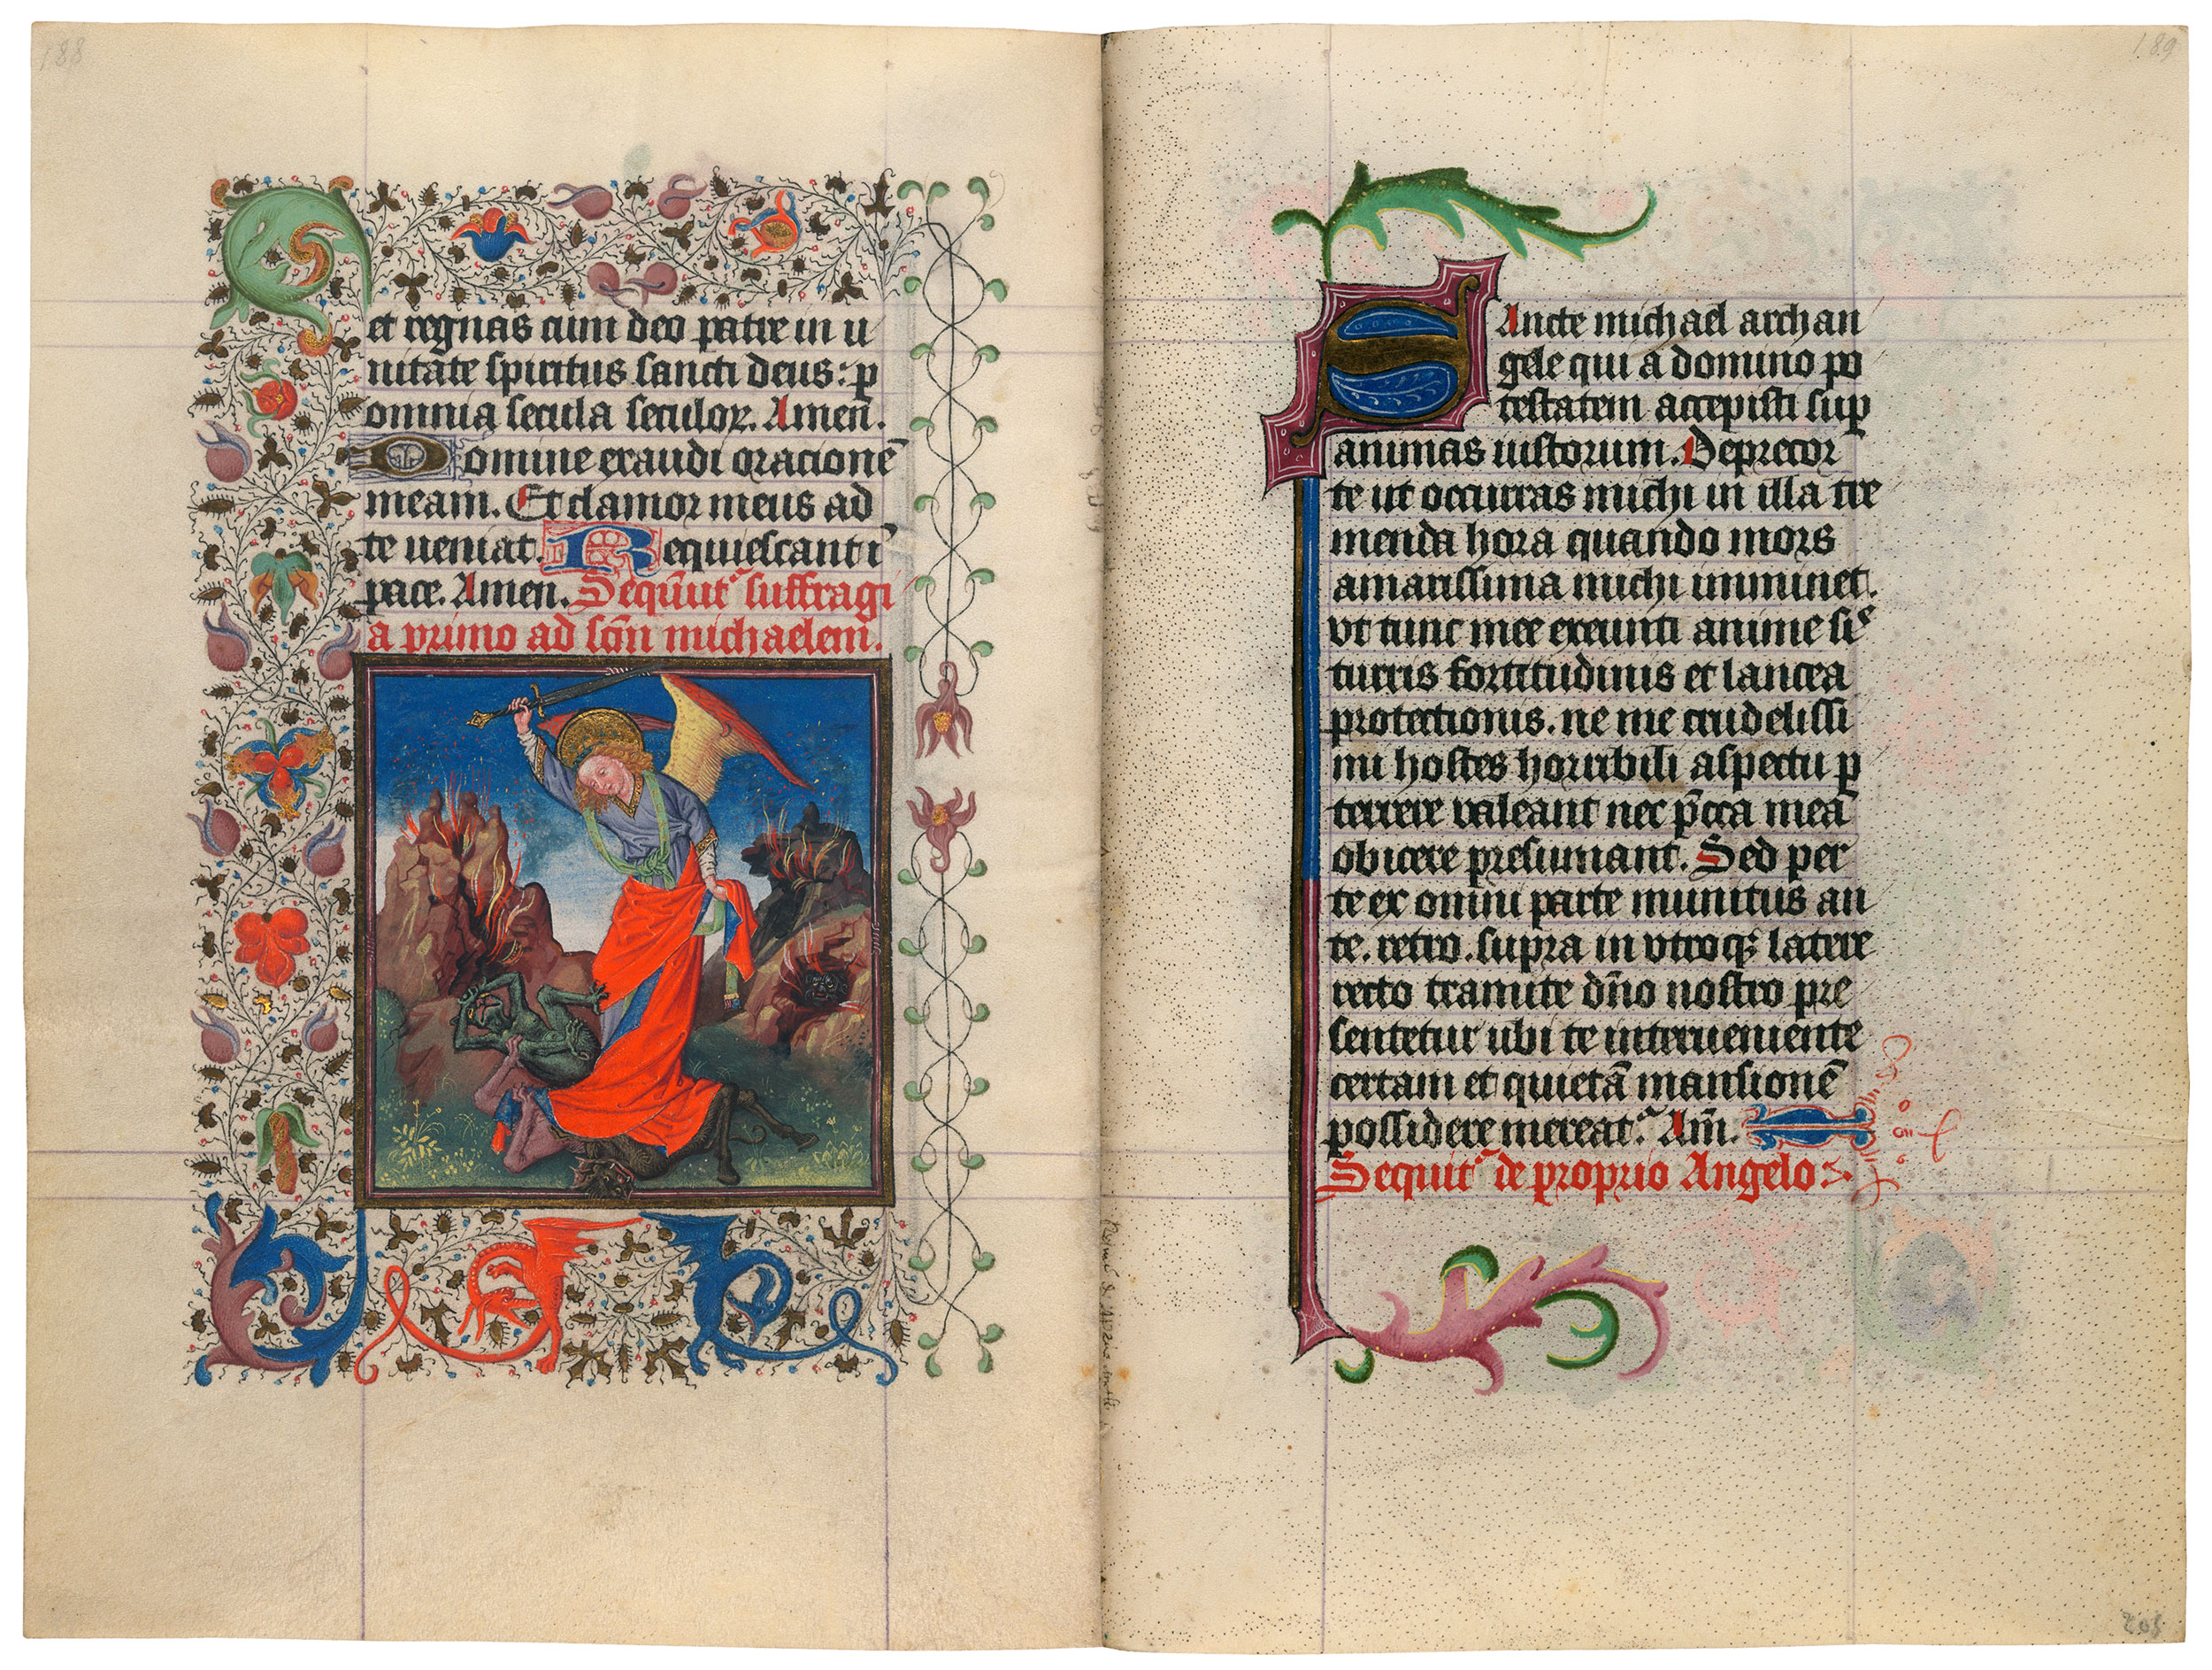 188
et regnas cum deo patre in u
nitate spiritus sancti deus: p
omnia secula seculoꝝ. Amen.
Domine exaudi oracionē
meam. Et clamor meus ad
te ueniat. Requiescant ī
pace. Amen. Sequūt᷑ suffragi
a primo ad scm̄ michaelem.
189
SAncte michael archan
gele qui a domino po
testatem accepisti sup
animas iustorum. Deprecor
te ut occurras michi in illa tre
menda hora quando mors
amarissima michi imminet.
vt tunc mee exeunti anime si
turris fortitudinis et lancea
protectionis. ne me crudelissi
mi hostes horribili aspectu p
terrere valeant nec pc̄ca mea
obicere presumant. Sed per
te ex omni parte munitus an
te. retro. supra in vtroqꝫ latere
recto tramite dn̄o nostro pre
sentetur ubi te interueniente
certam et quietā mansionē
possidere mereat᷑. Am̄.
Sequit᷑ de proprio Angelo: